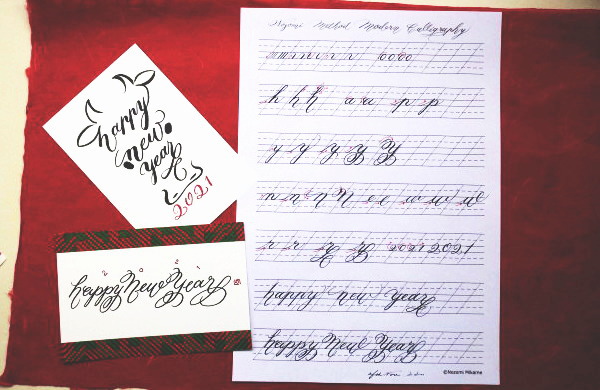 happy
new
year
2021
happy New Year
Nozomi Method Modern Calligraphy
h h h a u p p
y y y y y
n n n n e e w w w
r r r r 2021 2021
happy new year
happy New Year
©Nozomi Mikame